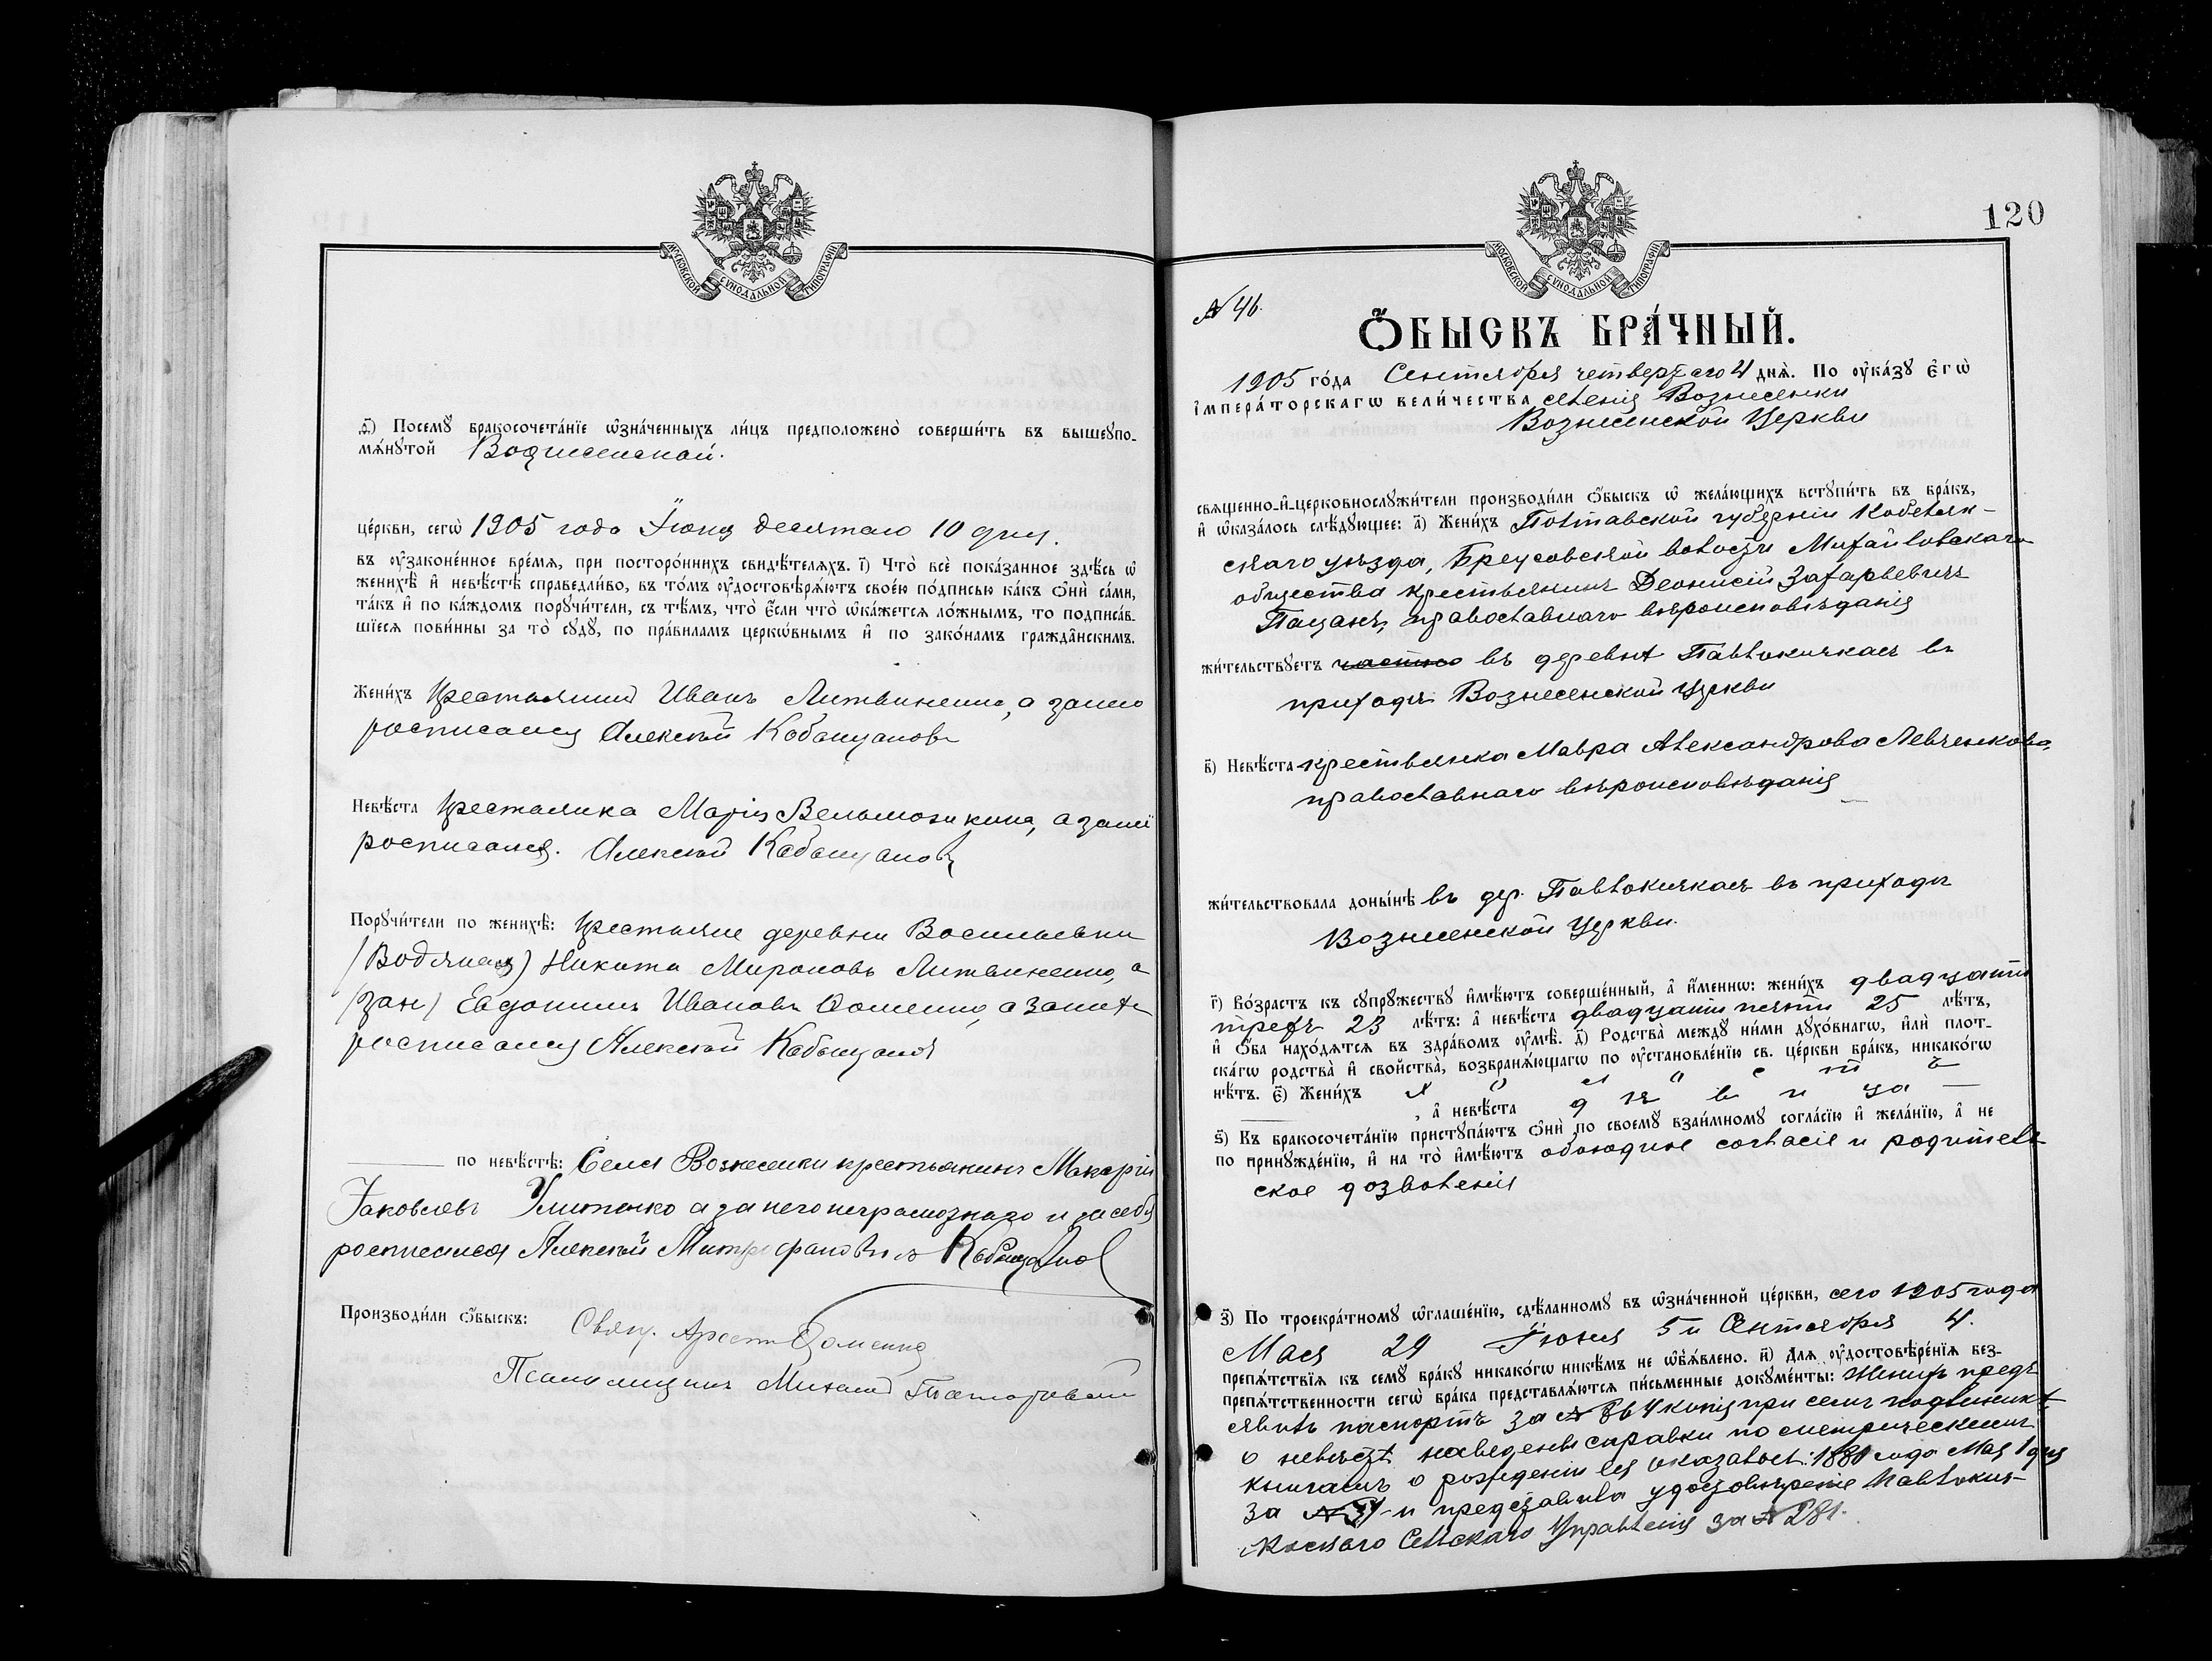 МОСКОВСКОЙ СѴНОДАЛЬНОЙ ТИПОГРАФІИ
д҃і) Посемꙋ̀ бракосочета́нїе ѡ҆зна́ченныхъ ли́цъ предположено̀ соверши́ть въ вышеꙋпо-
мѧ́нꙋтой Вознесенской.
це́ркви, сегѡ̀ 1905 года Іюня десятаго 10 дня.
въ ᲂу҆зако́не́нное вре́мѧ, при посторо́ннихъ свидѣ́телѧхъ. і҃) Что̀ всѐ пока́занное здѣ́сь ѡ҆
женихѣ̀ и҆ невѣ́стѣ справедли́во, въ то́мъ ᲂу҆достовѣрѧ́ютъ свое́ю по́дписью ка́къ ѻ҆нѝ са́ми,
та́къ и҆ по ка́ждомъ порꙋчи́тели, съ тѣ́мъ, что̀ є҆́сли что̀ ѡ҆ка́жетсѧ ло́жнымъ, то подписа́в-
шїесѧ пови́нны за то̀ сꙋдꙋ̀, по пра́виламъ церкѡ́внымъ и҆ по зако́намъ гражда̑нскимъ.
Жени́хъ Крестьянинъ Иванъ Литвиненко, а за него
росписался Алексѣй Кабанцановъ
Невѣ́ста Крестьянка Марія Вельможкина, а за неё
росписался. Алексѣй Кабанцановъ
Порꙋчи́тели по женихѣ̀: Крестьяне деревни Васильевки
(Водяная) Никита Мироновъ Литвиненко, а
(зак) Евдокимъ Ивановъ Доменко, а за нихъ
росписался Алексѣй Кабанцановъ
по невѣ́стѣ: Села Вознесенки крестьянинъ Макарій
Іаковлевъ Улитенко а за него неграмотнаго и за себя
росписался Алексѣй Митрофановичъ Кабанцановъ
Производи́ли ѻ҆́быскъ: Свящ. Доменко
Псаломщикъ Михаилъ
120
МОСКОВСКОЙ СѴНОДАЛЬНОЙ ТИПОГРАФІИ
№ 46.
Ѻ҆́БЫСКЪ БРА́ЧНЫЙ.
1905 го́да Сентября четвертаго 4 днѧ̀. По ᲂу҆ка́зꙋ є҆гѡ̀
і҆мпера́торскагѡ вели́чества селенія Вознесенки
Вознесенской Церкви
свѧщенно-и҆-церковнослꙋжи́тели производи́ли ѻ҆́быскъ ѡ҆ жела́ющихъ встꙋпи́ть въ бра́къ,
и҆ ѡ҆каза́лось слѣ́дꙋющее: а҃) Жени́хъ Полтавской губерніи Кобеляк-
скаго уѣзда, Бреусовской волости Михайловскаго
общества крестьянинъ Деонисій Захарьевичъ
Пацанъ, православнаго вѣроисповѣданія
жи́тельствꙋетъ въ деревнѣ Павлокичкасъ въ
приходѣ Вознесенской церкви
в҃) Невѣ́ста крестьянка Мавра Александрова Левченкова,
православнаго вѣроисповѣданія
жи́тельствовала доны́нѣ въ дер. Павлокичкасъ въ приходѣ
Вознесенской Церкви.
г҃) Во́зрастъ къ сꙋпрꙋ́жествꙋ и҆мѣ́ютъ соверше́нный, а҆ и҆́меннѡ: жени́хъ двадцати
трехъ 23 лѣ́тъ: а҆ невѣ́ста двадцати пяти 25 лѣ́тъ,
и҆ ѻ҆́ба нахо́дѧтсѧ въ здра́вомъ ᲂу҆мѣ̀. д҃) Родства̀ междꙋ ни́ми дꙋхо́внагѡ, и҆лѝ плот-
ска́гѡ родства̀ и҆ свойства̀, возбранѧ́ющагѡ по ᲂу҆становле́нїю св. це́ркви бра́къ, никако́гѡ
нѣ́тъ. є҃) Жени́хъ х о л о с т ъ
, а҆ невѣ́ста д ѣ в и ца
ѕ҃) Къ бракосочета́нїю пристꙋпа́ютъ ѻ҆нѝ по своемꙋ̀ взаи́мномꙋ согла́сїю и҆ жела́нїю, а҆ не
по принꙋжде́нїю, и҆ на то̀ и҆мѣ́ютъ обоюдное согласіе и родитель-
ское дозволенія
з҃) По троекра́тномꙋ ѡ҆глаше́нїю, сдѣ́ланномꙋ въ ѡ҆зна́ченной це́ркви, сего 1905 года
Мая 29 Іюня 5 и Сентября 4.
препѧ́тствїѧ къ семꙋ̀ бра́кꙋ никако́гѡ никѣ́мъ не ѡ҆б̾ѧ́влено. и҃) Длѧ ᲂу҆достовѣре́нїѧ без-
препѧ́тственности сегѡ̀ бра́ка представлѧ́ютсѧ пи́сьменные докꙋме́нты: Женихъ предъ
явилъ паспортъ за № 864 копія при семъ
о невѣстѣ наведены справки по метрическимъ
книгамъ о рожденіи ея оказалось: 1880 года Мая 1 дня
за № и представила удостовѣреніе Павлокич-
касскаго Сельскаго Управленія за № 281.